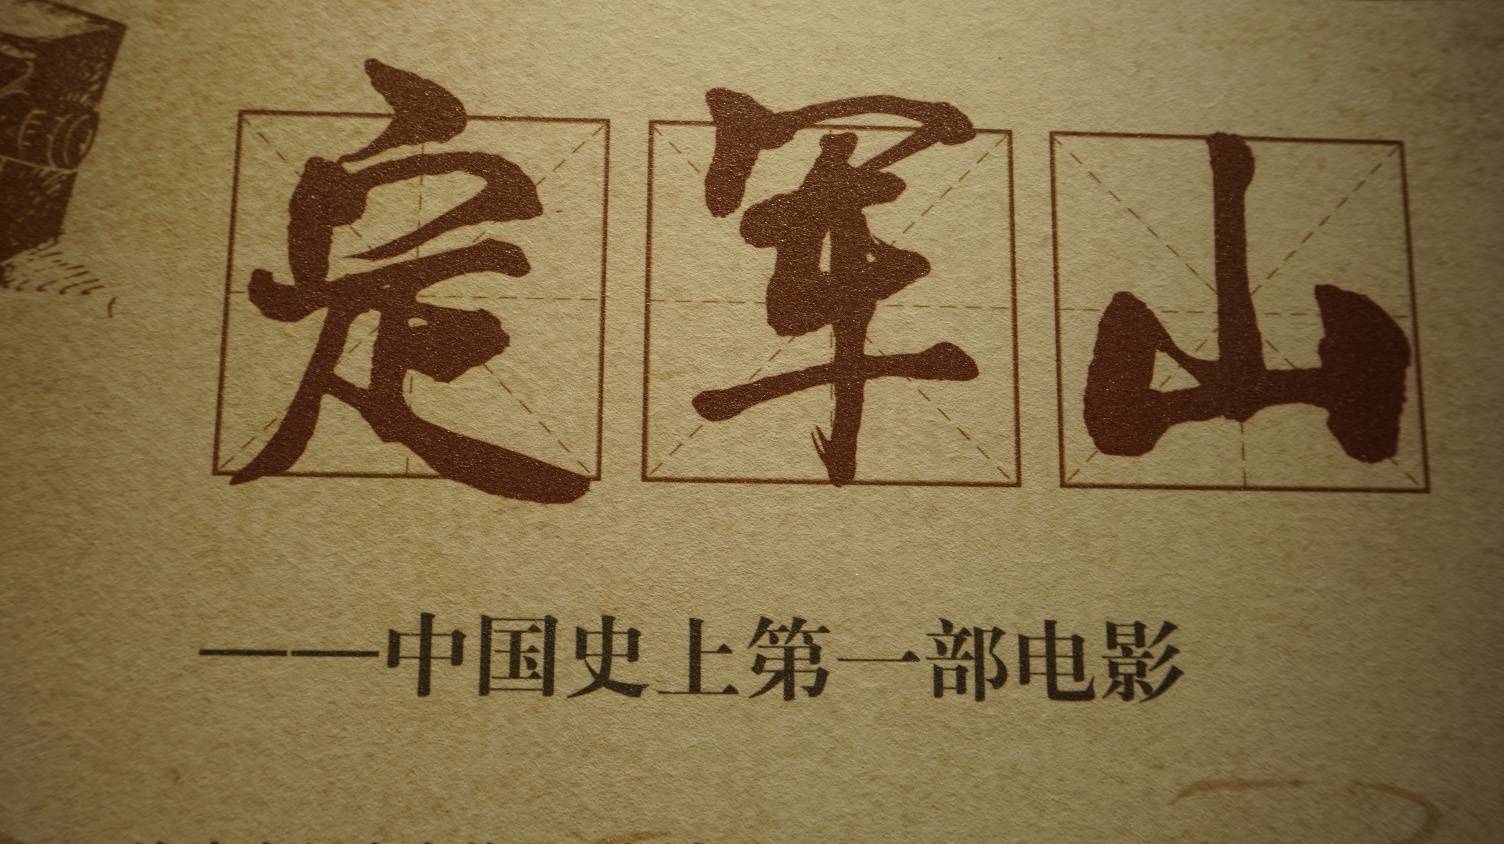 定军山
——中国史上第一部电影